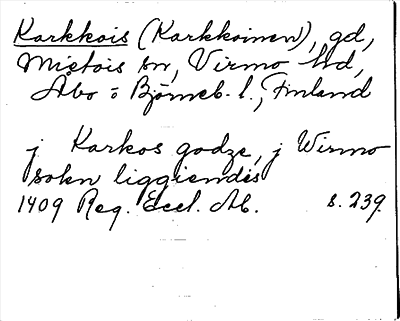 Karkkois (Karkkoinen), gd,
Mietois sn, Virmo hd,
Åbo o Björneb. l., Finland
j Karkos godze, j Wirmo
sokn liggiendis
1409 Reg. Eccl. Ab. s. 239.